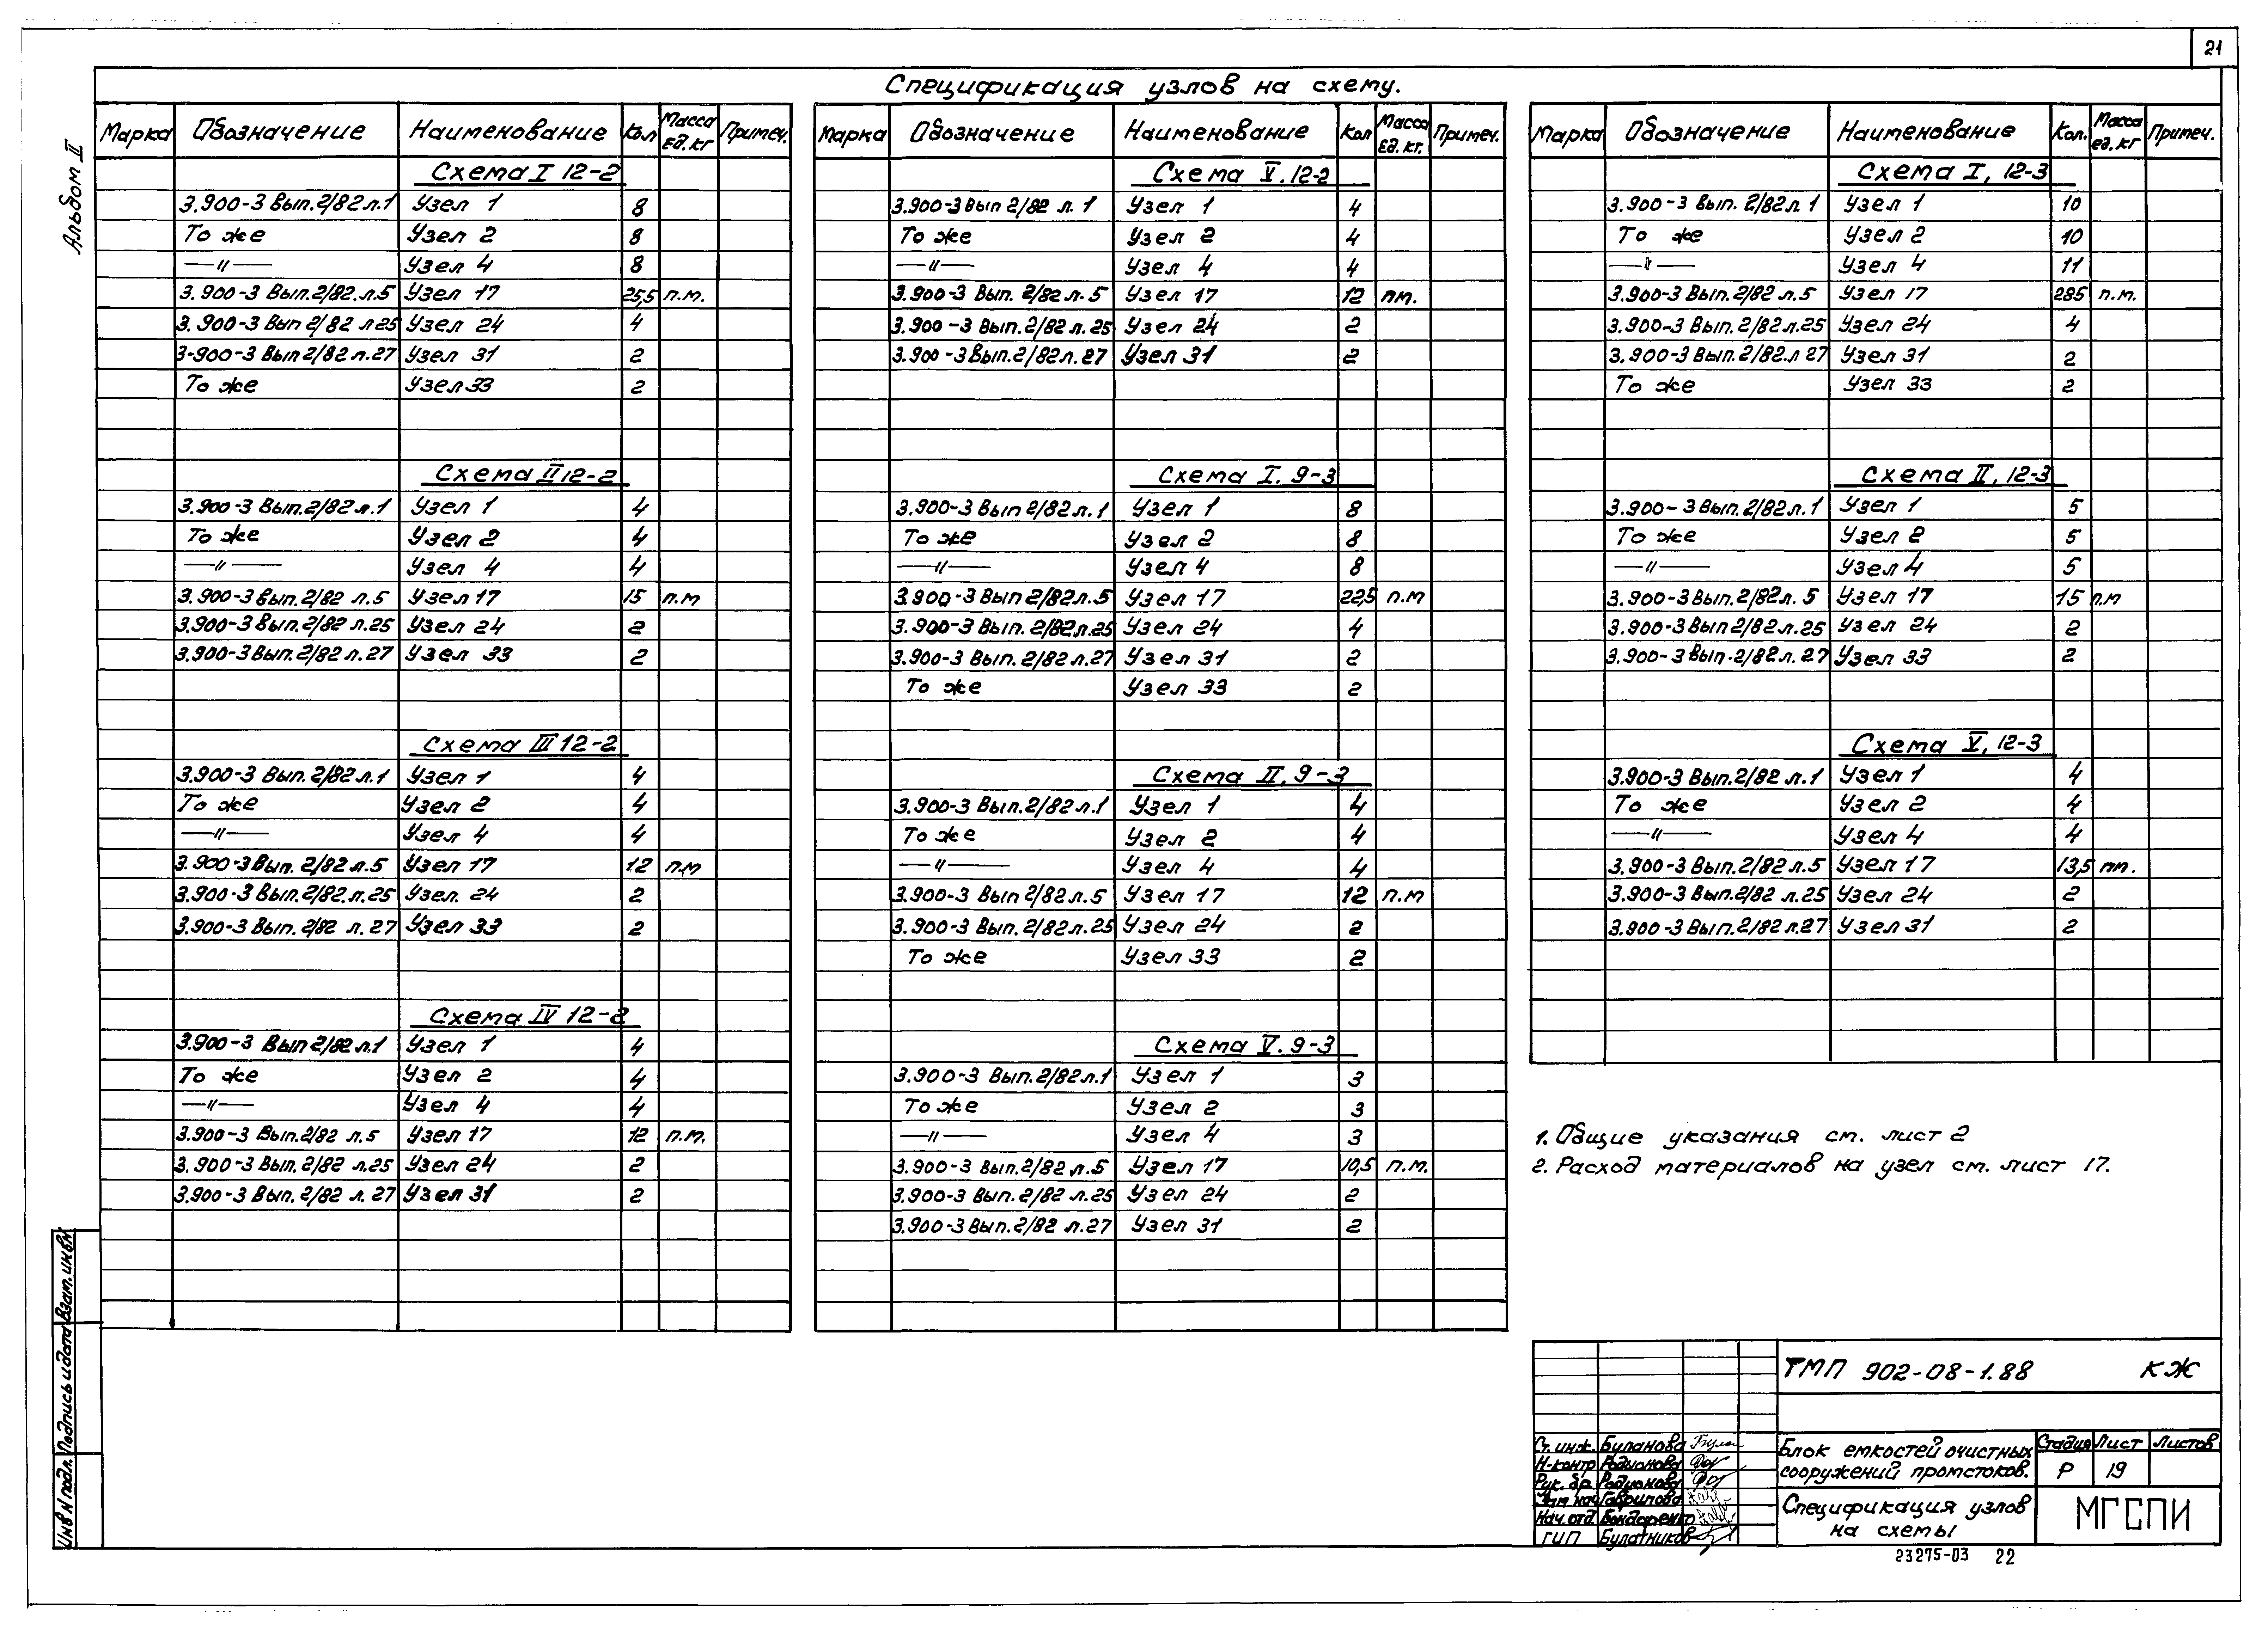 21
Альбом II
Спецификация узлов на схему.
Марка Обозначение Наименование Кол Масса ед.кг Примеч.
Схема I 12-2
3.900-3 Вып.2/82 л.1 Узел 1 8
То же Узел 2 8
—〃— Узел 4 8
3.900-3 Вып.2/82.л.5 Узел 17 25,5 п.м.
3.900-3 Вып 2/82 л 25 Узел 24 4
3-900-3 Вып 2/82 л.27 Узел 31 2
То же Узел 33 2
Схема II 12-2
3.900-3 Вып.2/82 л.1 Узел 1 4
То же Узел 2 4
—〃— Узел 4 4
3.900-3 Вып.2/82 л.5 Узел 17 15 п.м
3.900-3 Вып.2/82 л.25 Узел 24 2
3.900-3 Вып.2/82 л.27 Узел 33 2
Схема III 12-2
3.900-3 Вып.2/82 л.1 Узел 1 4
То же Узел 2 4
—〃— Узел 4 4
3.900-3 Вып.2/82 л.5 Узел 17 12 п.м
3.900-3 Вып.2/82.л.25 Узел. 24 2
3.900-3 Вып. 2/82 л. 27 Узел 33 2
Схема IV 12-2
3.900-3 Вып 2/82 л.1 Узел 1 4
То же Узел 2 4
—〃— Узел 4 4
3.900-3 Вып.2/82 л.5 Узел 17 12 п.м.
3.900-3 Вып. 2/82 л.25 Узел 24 2
3.900-3 Вып. 2/82 л. 27 Узел 31 2
Марка Обозначение Наименование Кол Масса ед.кг. Примеч.
Схема V. 12-2
3.900-3 Вып 2/82 л. 1 Узел 1 4
То же Узел 2 4
—〃— Узел 4 4
3.900-3 Вып. 2/82 л.5 Узел 17 12 пм.
3.900-3 Вып.2/82 л.25 Узел 24 2
3.900-3 Вып.2/82 л.27 Узел 31 2
Схема I. 9-3
3.900-3 Вып 2/82 л.1 Узел 1 8
То же Узел 2 8
—〃— Узел 4 8
3.900-3 Вып 2/82 л.5 Узел 17 22,5 п.м
3.900-3 Вып. 2/82 л.25 Узел 24 4
3.900-3 Вып. 2/82 л.27 Узел 31 2
То же Узел 33 2
Схема II, 9-3
3.900-3 Вып.2/82 л.1 Узел 1 4
То же Узел 2 4
—〃— Узел 4 4
3.900-3 Вып 2/82 л.5 Узел 17 12 п.м
3.900-3 Вып. 2/82 л.25 Узел 24 2
То же Узел 33 2
Схема V. 9-3
3.900-3 Вып.2/82 л.1 Узел 1 3
То же Узел 2 3
—〃— Узел 4 3
3.900-3 Вып.2/82 л.5 Узел 17 10,5 п.м.
3.900-3 Вып. 2/82 л.25 Узел 24 2
3.900-3 Вып.2/82 л.27 Узел 31 2
Марка Обозначение Наименование Кол. Масса ед.кг Примеч.
Схема I, 12-3
3.900-3 Вып. 2/82 л. 1 Узел 1 10
То же Узел 2 10
—〃— Узел 4 11
3.900-3 Вып.2/82 л.5 Узел 17 285 п.м.
3.900-3 Вып.2/82 л.25 Узел 24 4
3.900-3 Вып.2/82.л 27 Узел 31 2
То же Узел 33 2
Схема II, 12-3
3.900-3 Вып.2/82 л.1 Узел 1 5
То же Узел 2 5
—〃— Узел 4 5
3.900-3 Вып.2/82 л. 5 Узел 17 15 п.м
3.900-3 Вып.2/82 л.25 Узел 24 2
3.900-3 Вып.2/82 л. 27 Узел 33 2
Схема V, 12-3
3.900-3 Вып.2/82 л.1 Узел 1 4
То же Узел 2 4
—〃— Узел 4 4
3.900-3 Вып.2/82 л.5 Узел 17 13,5 пм.
3.900-3 Вып.2/82 л.25 Узел 24 2
3.900-3 Вып.2/82 л.27 Узел 31 2
1. Общие указания см. лист 2
2. Расход материалов на узел см. лист 17.
Инв N подл. Подпись и дата Взам. инв N
ТМП 902-08-1.88 КЖ
Ст. инж. Буланова
Н-контр Родионова
Рук. бр Родионова
Зам нач Гаврилова
Нач. отд Бондаренко
ГИП Булатников
Блок емкостей очистных сооружений промстоков.
Стадия Лист Листов
Р 19
Спецификация узлов на схемы
МГСПИ
23275-03 22